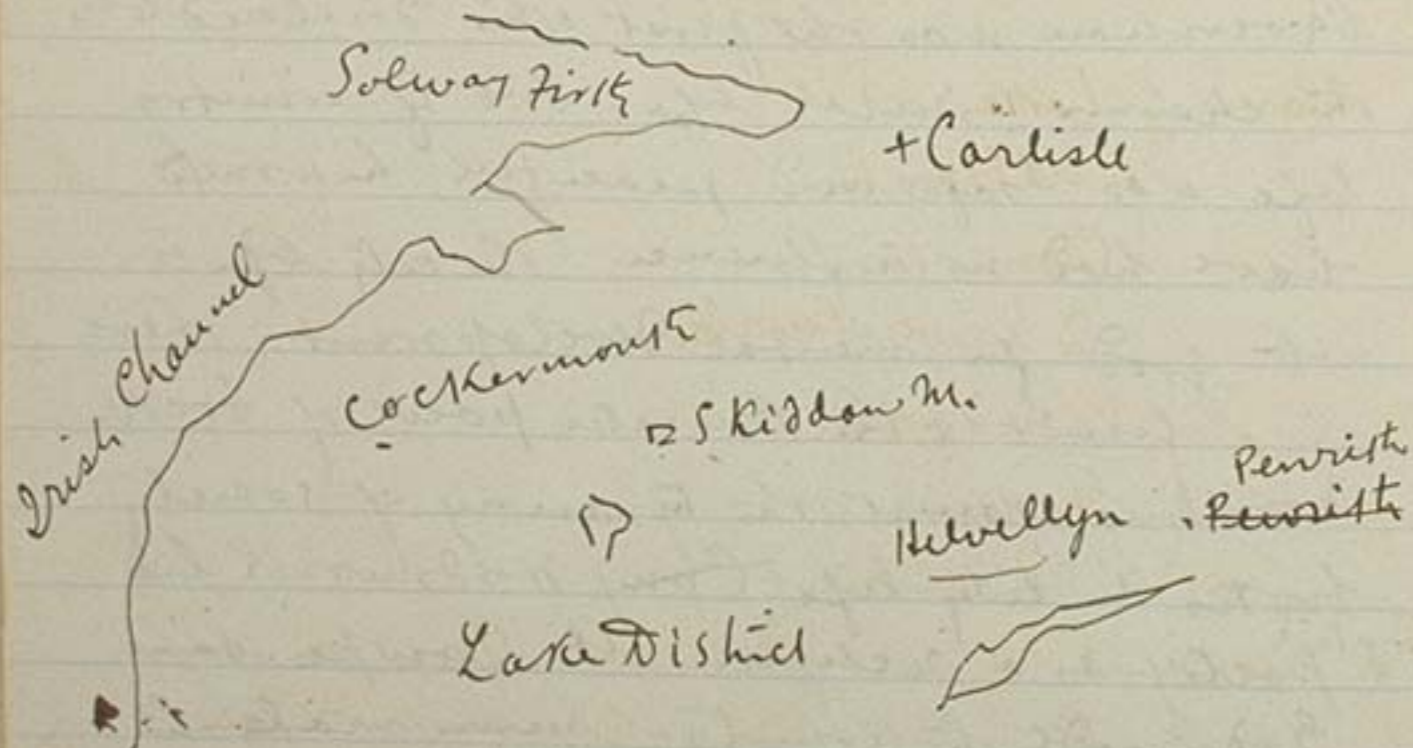 Solway Firth
+ Carlisle
Irish Channel
Cockermouth
Skiddaw M.
Penrith
Helvellyn
Penrith
Lake District